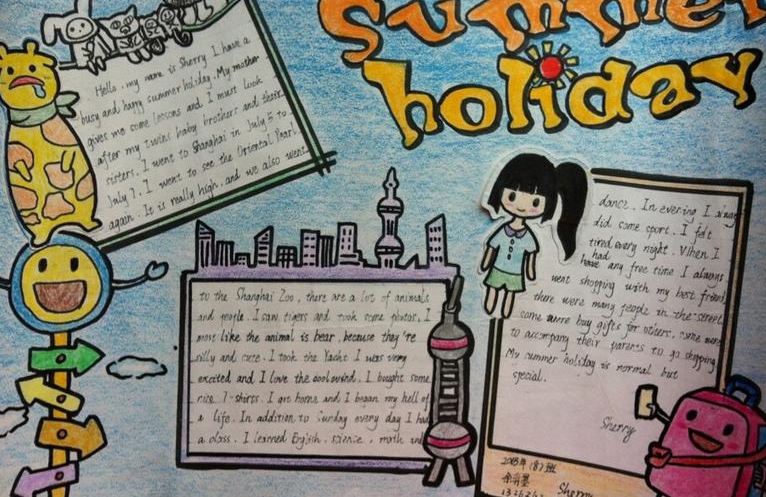 Summer
holiday
Hello, my name is Sherry. I have a
busy and happy summer holiday. My mother
gives me some lessons and I must look
after my twins baby brothers and their
sisters. I went to Shanghai in July 5 to
July 7. I went to see the Oriental Pearl
again. It is really high, and we also went
to the Shanghai Zoo, there are a lot of animals
and people. I saw tigers and took some photos. I
most like the animal is bear, because they're
silly and cute. I took the Yacht I was very
excited and I love the cool wind. I bought some
nice T-shirts. I got home and I began my hell of
a life. In addition to Sunday every day I had
a class. I learned English, science, math and
dance. In evering I
did some sport. I felt
tired every night. When I
had
have any free time I always
went shopping with my best friend
there were many people in the street,
some were buy gifts for others, some were
to accompany their parents to go shopping
My summer holiday is normal but
special.
Sherry
Sherry